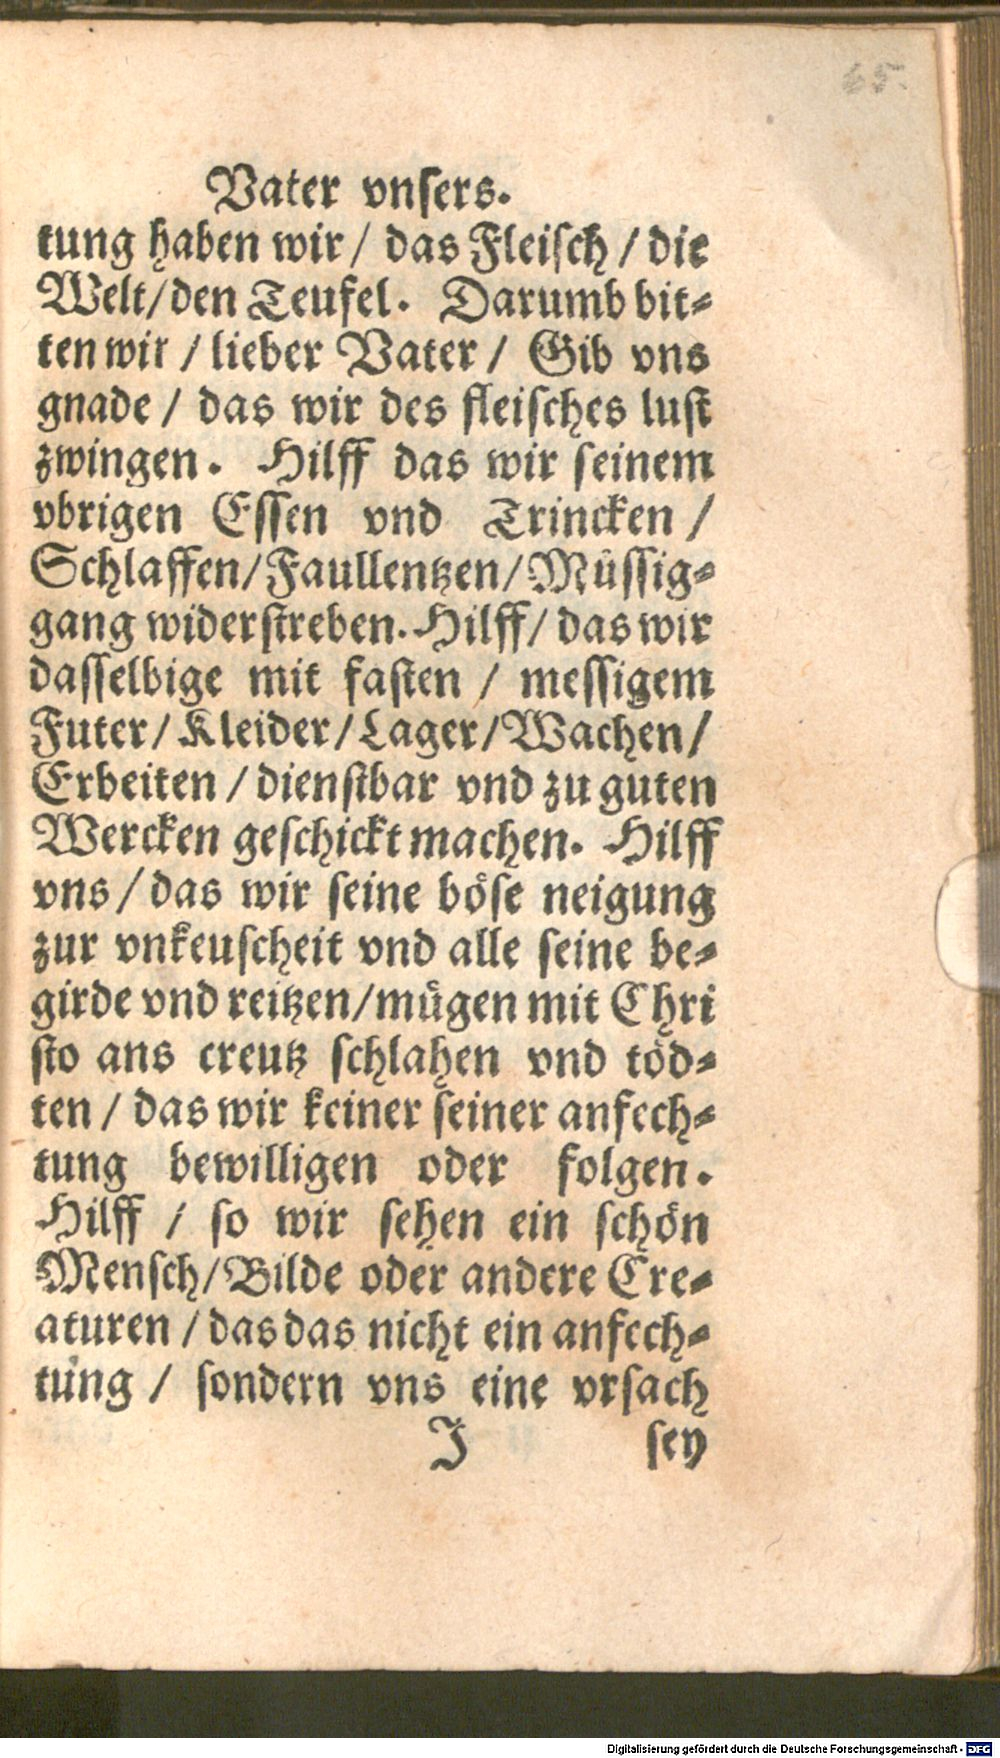 65.
Vater vnsers.
tung haben wir / das Fleisch / die
Welt/den Teufel. Darumb bit⸗
ten wir / lieber Vater / Gib vns
gnade / das wir des fleisches lust
zwingen. Hilff das wir seinem
vbrigen Essen vnd Trincken /
Schlaffen/Faullentzen/Müssig⸗
gang widerstreben. Hilff/ das wir
dasselbige mit fasten / messigem
Futer/Kleider/Lager/Wachen/
Erbeiten / dienstbar vnd zu guten
Wercken geschickt machen. Hilff
vns / das wir seine böse neigung
zur vnkeuscheit vnd alle seine be⸗
girde vnd reitzen/mügen mit Chri
sto ans creutz schlahen vnd töd⸗
ten / das wir keiner seiner anfech⸗
tung bewilligen oder folgen.
Hilff / so wir sehen ein schön
Mensch/Bilde oder andere Cre⸗
aturen / das das nicht ein anfech⸗
tung / sondern vns eine vrsach
J sey
Digitalisierung gefördert durch die Deutsche Forschungsgemeinschaft - DFG